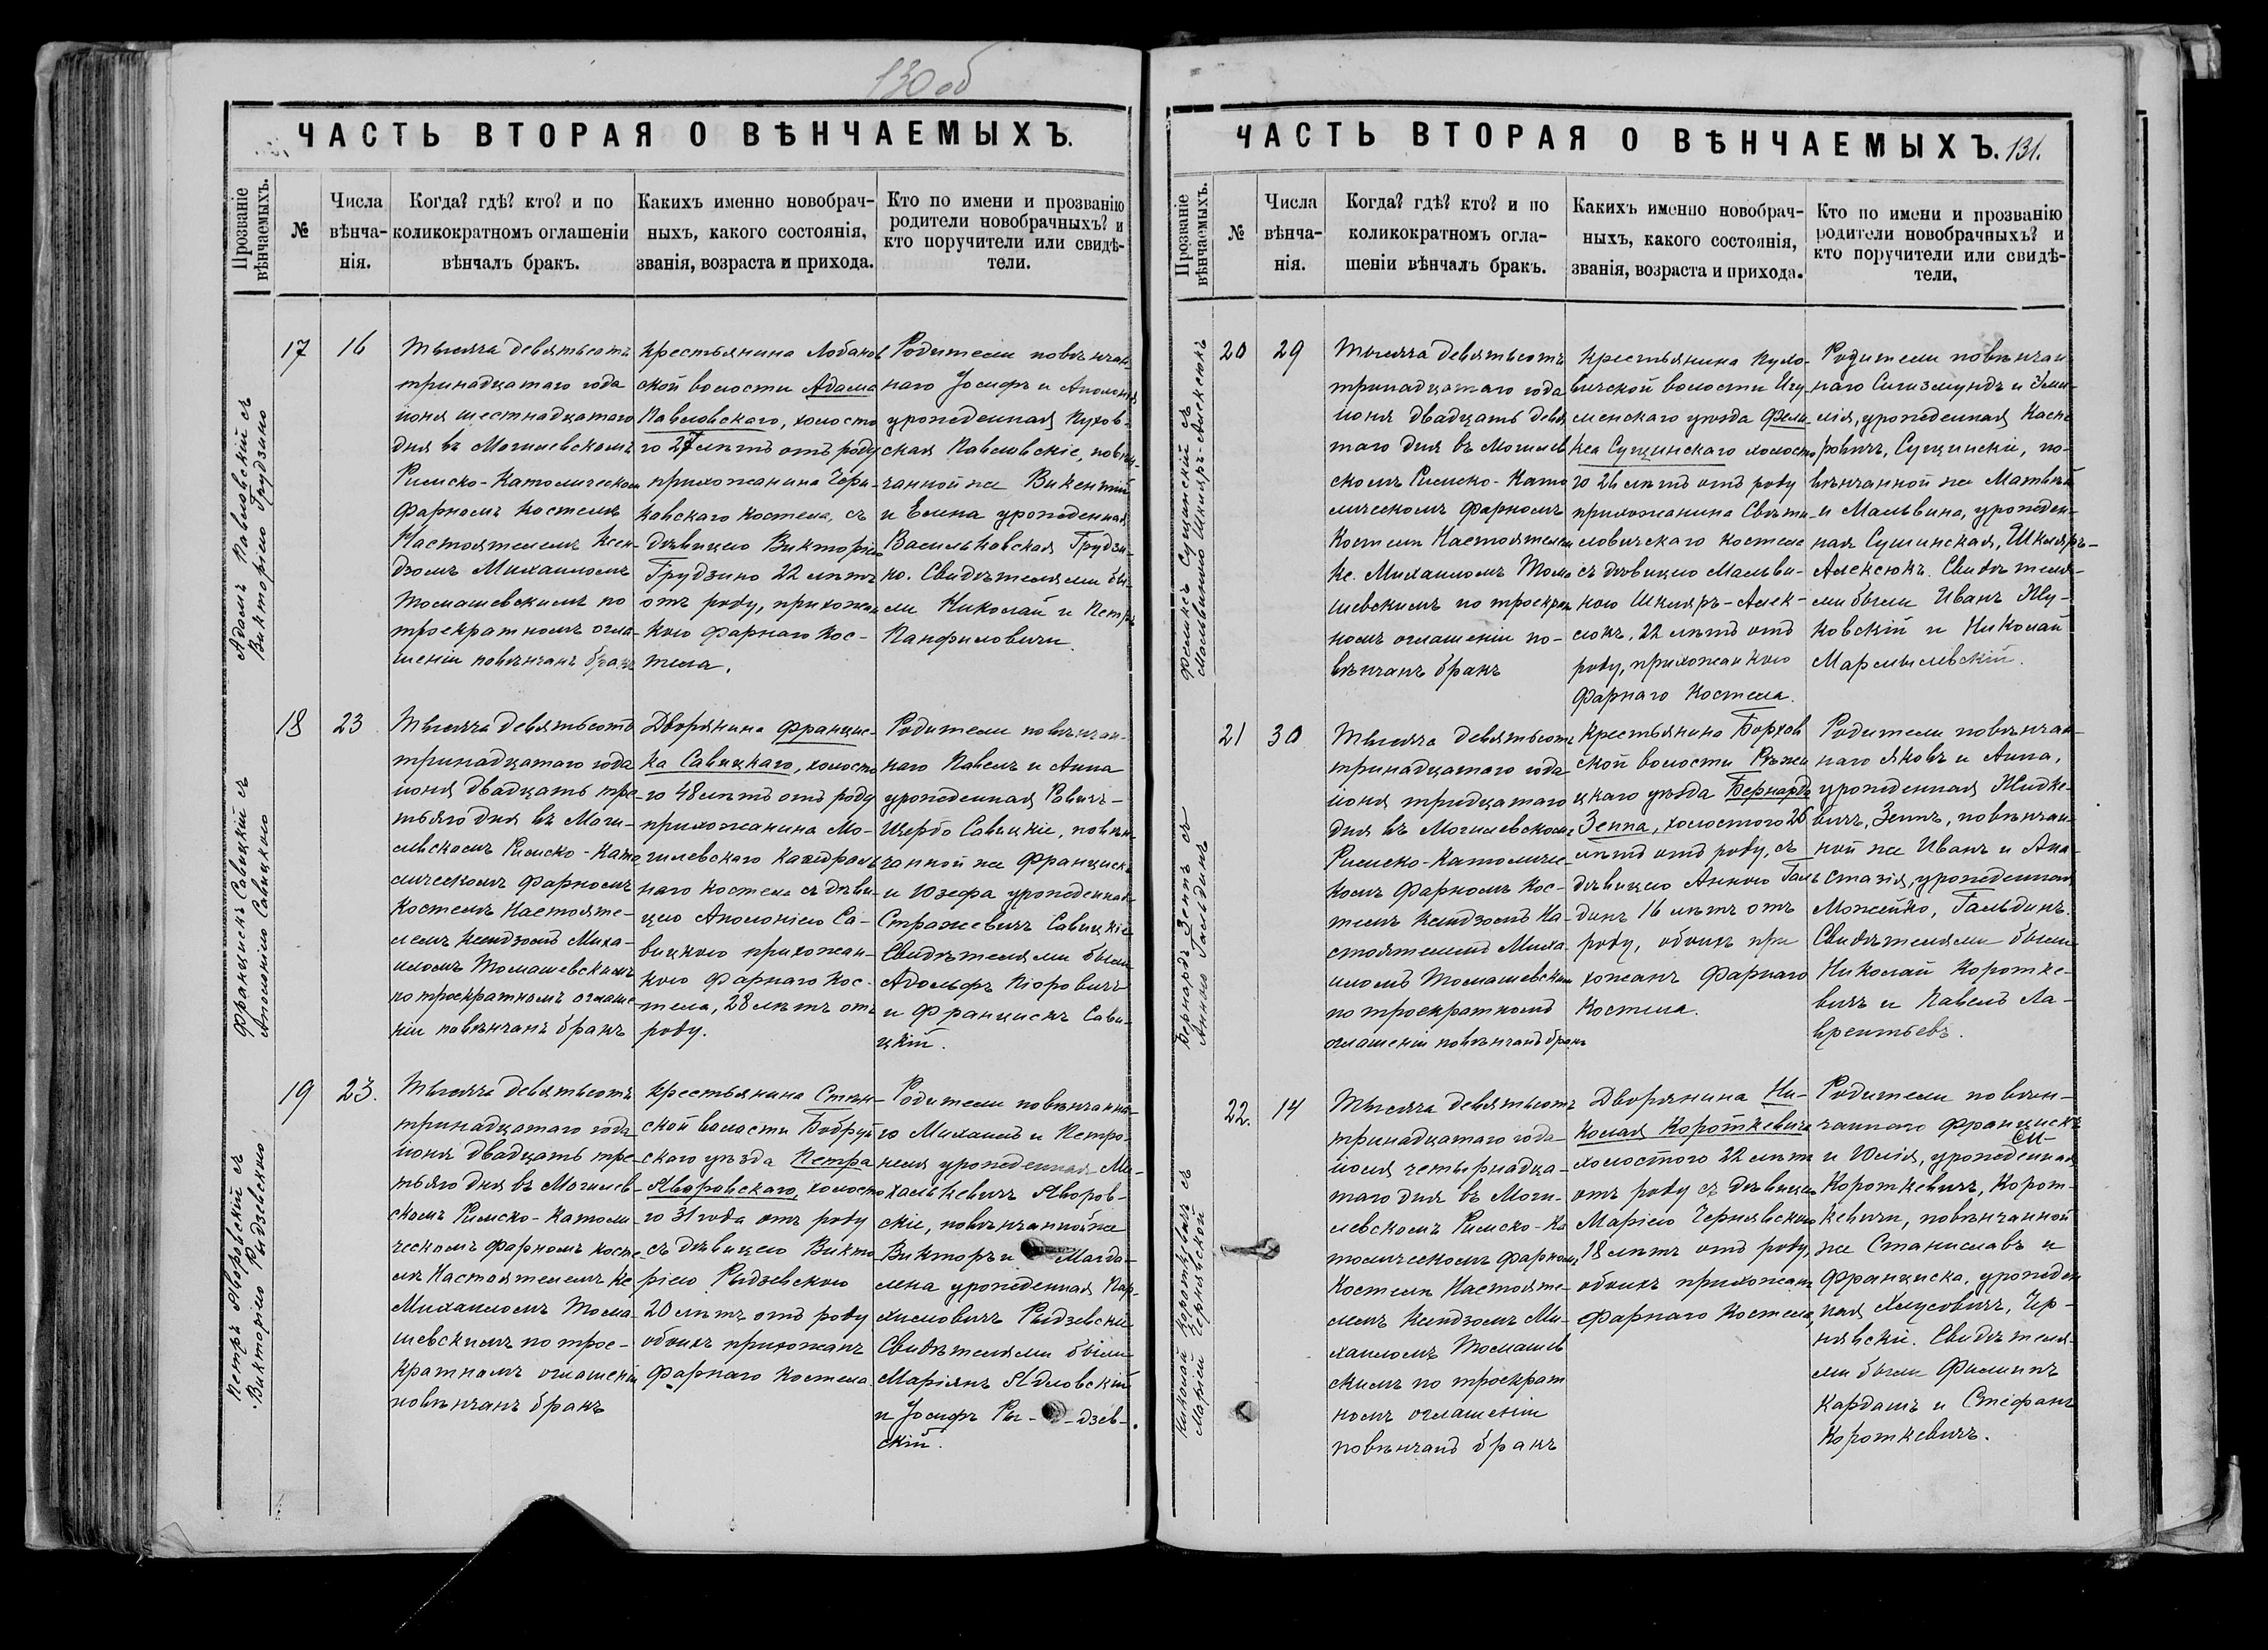 130 об
ЧАСТЬ ВТОРАЯ О ВѢНЧАЕМЫХЪ.
Прозваніе
вѣнчаемыхъ.
№
Числа
вѣнча-
нія.
Когда? гдѣ? кто? и по
коликократномъ оглашеніи
вѣнчалъ бракъ.
Какихъ именно новобрач-
ныхъ, какого состоянія,
званія, возраста и прихода.
Кто по имени и прозванію
родители новобрачныхъ? и
кто поручители или свидѣ-
тели.
Адамъ Павловскій съ
Викторіею Грудзино
17
16
Тысяча девятьсотъ
тринадцатаго года
іюня шестнадцатаго
дня въ Могилевскомъ
Римско-Католическом
Фарномъ Костелѣ
Настоятелемъ Ксен-
дзомъ Михаиломъ
Томашевскимъ по
троекратномъ огла-
шеніи повѣнчанъ бракъ
Крестьянина Лобанов
ской волости Адама
Павловскаго, холосто
го 27 лѣтъ отъ роду
прихожанина Чери-
ковскаго Костела, съ
дѣвицею Викторіею
Грудзино 22 лѣтъ
отъ роду, прихожан
кою Фарнаго Кос-
тела.
Родители повѣнчан
наго Іосифъ и Аполонія
урожденная Пухов-
ская Павловскіе, повѣн-
чанной же Викентій
и Елена урожденная
Васильковская Грудзи-
но. Свидѣтелями бы-
ли Николай и Петръ
Панфиловичи.
Францискъ Савицкій съ
Аполоніею Савицкою
18
23
Тысяча девятьсотъ
тринадцатаго года
іюня двадцать тре-
тьяго дня въ Моги-
левскомъ Римско-Като
лическомъ Фарномъ
Костелѣ Настояте-
лемъ Ксендзомъ Миха-
иломъ Томашевскимъ
по троекратномъ оглаше-
ніи повѣнчанъ бракъ
Дворянина Францис-
ка Савицкаго, холосто
го 48 лѣтъ отъ роду
прихожанина Мо-
гилевскаго Каѳедраль
наго Костела съ дѣви-
цею Аполоніею Са-
вицкою прихожан-
кою Фарнаго Кос-
тела, 28 лѣтъ отъ
роду.
Родители повѣнчан-
наго Павелъ и Анна
урожденная Равичъ-
Щербо Савицкіе, повѣн-
чанной же Францискъ
и Юзефа урожденная
Стражевичъ Савицкіе
Свидѣтелями были
Адольфъ Піоровичъ
и Францискъ Сави-
цкій.
Петръ Яворовскій съ
Викторіею Рыдзевскою
19
23.
Тысяча девятьсотъ
тринадцатаго года
іюня двадцать тре-
тьяго дня въ Могилев-
скомъ Римско-Католи-
ческомъ Фарномъ Косте
лѣ Настоятелемъ Кс
Михаиломъ Тома-
шевскимъ по трое-
кратномъ оглашеніи
повѣнчанъ бракъ
Крестьянина Стѣн-
ской волости Бобруй
скаго уѣзда Петра
Яворовскаго, холосто
го 31 года отъ роду
съ дѣвицею Викто
ріею Рыдзевскою
20 лѣтъ отъ роду
обоихъ прихожанъ
Фарнаго Костела.
Родители повѣнчанна-
го Михаилъ и Петро-
неля урожденная Ми-
халькевичъ Яворов-
скіе, повѣнчанной же
Викторъ и Магда-
лена урожденная Кар-
хиловичъ Рыдзевскіе
Свидѣтелями были
Маріянъ Ядловскій
и Іосифъ Ры-дзев-
скій.
ЧАСТЬ ВТОРАЯ О ВѢНЧАЕМЫХЪ. 131.
Прозваніе
вѣнчаемыхъ.
№
Числа
вѣнча-
нія.
Когда? гдѣ? кто? и по
коликократномъ огла-
шеніи вѣнчалъ бракъ.
Какихъ именно новобрач-
ныхъ, какого состоянія,
званія, возраста и прихода.
Кто по имени и прозванію
родители новобрачныхъ? и
кто поручители или свидѣ-
тели.
Феликсъ Сущинскій съ
Мальвиною Шкляръ-Алексюкъ
20
29
Тысяча девятьсотъ
тринадцатаго года
іюня двадцать девя
таго дня въ Могилев
скомъ Римско-Като
лическомъ Фарномъ
Костелѣ Настоятелем
Кс. Михаиломъ Тома
шевскимъ по троекрат
номъ оглашеніи по-
вѣнчанъ бракъ
Крестьянина Пуло-
вичской волости Игу-
менскаго уѣзда Фели-
кса Сущинскаго холосто
го 26 лѣтъ отъ роду
прихожанина Свѣти-
ловичскаго Костела
съ дѣвицею Мальви-
ною Шкляръ-Алек-
сюкъ, 22 лѣтъ отъ
роду, прихожанкою
Фарнаго Костела.
Родители повѣнчан
наго Сигизмундъ и Эми-
лія, урожденная Каспе
ровичъ, Сущинскіе, по-
вѣнчанной же Матвѣй
и Мальвина, урожден-
ная Сушинская, Шкляръ-
Алексюкъ. Свидѣтеля-
ми были Иванъ Жу-
ковскій и Николай
Мармылевскій.
Бернардъ Зеппъ съ
Анною Гальдинъ
21
30
Тысяча девятьсотъ
тринадцатаго года
іюня тридцатаго
дня въ Могилевскомъ
Римско-Католичес
комъ Фарномъ Кос-
телѣ Ксендзомъ На-
стоятелемъ Миха-
иломъ Томашевским
по троекратномъ
оглашеніи повѣнчанъ бракъ
Крестьянина Борхов
ской волости Рѣжи
цкаго уѣзда Бернарда
Зеппа, холостого 26
лѣтъ отъ роду, съ
дѣвицею Анною Галь
динъ 16 лѣтъ отъ
роду, обоихъ при
хожанъ Фарнаго
Костела.
Родители повѣнчан-
наго Яковъ и Анна,
урожденная Жидке-
вичъ, Зеппъ, повѣнчан
ной же Иванъ и Ана-
стазія, урожденная
Можейко, Гальдинъ.
Свидѣтелями были
Николай Коротке-
вичъ и Павелъ Ла-
врентьевъ.
Николай Короткевичъ съ
Маріей Чернявской
22.
14
Тысяча девятьсотъ
тринадцатаго года
іюля четырнадца-
таго дня въ Моги-
левскомъ Римско-Ка
толическомъ Фарномъ
Костелѣ Настояте-
лемъ Ксендзомъ Ми-
хаиломъ Томашев
скимъ по троекрат
номъ оглашеніи
повѣнчанъ бракъ
Дворянина Ни-
колая Короткевича
холостого 22 лѣтъ
отъ роду съ дѣвицею
Маріею Чернявскою
18 лѣтъ отъ роду,
обоихъ прихожанъ
Фарнаго Костела,
Родители повѣн-
чаннаго Францискъ
и Юлія, урожденная
Короткевичъ, Корот-
кевичи, повѣнчанной
же Станиславъ и
Франциска, урожден
ная Хлусовичъ, Чер-
нявскіе. Свидѣтеля-
ми были Филиппъ
Кардашъ и Стефанъ
Короткевичъ.